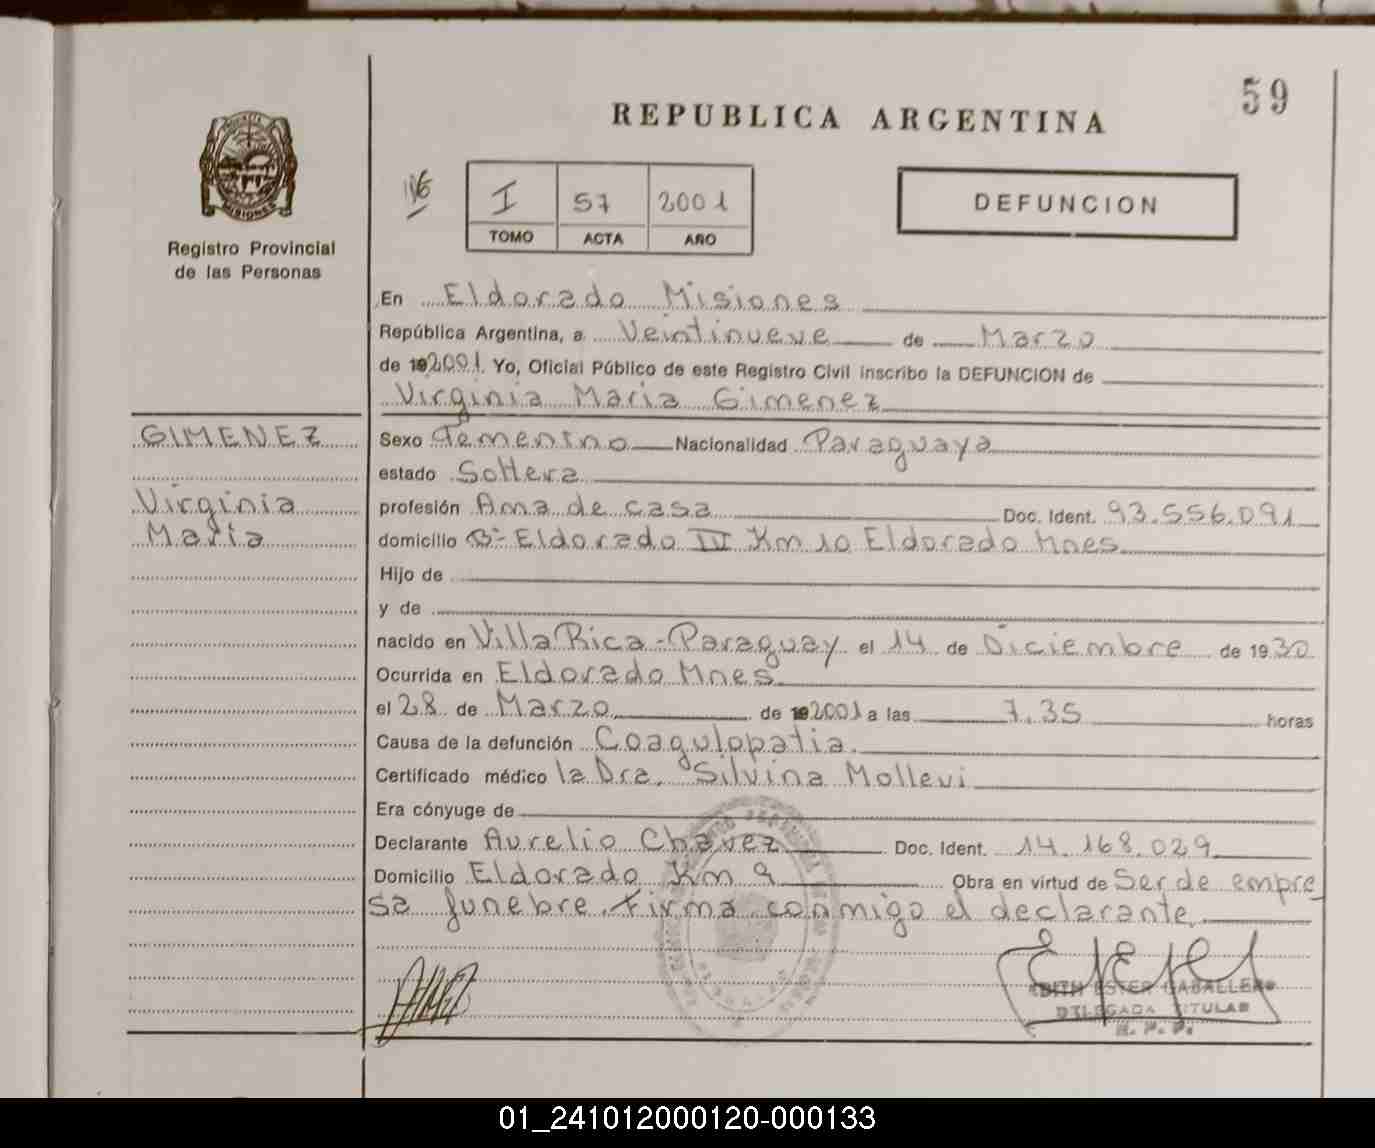 59
REPUBLICA ARGENTINA
I 57 2001
TOMO ACTA AÑO
DEFUNCION
MISIONES
Registro Provincial
de las Personas
En Eldorado Misiones
República Argentina, a Veintinueve de Marzo
de 192001. Yo, Oficial Público de este Registro Civil inscribo la DEFUNCION de
Virginia Maria Gimenez
GIMENEZ
Virginia
Maria
Sexo Femenino Nacionalidad Paraguaya
estado Soltera
profesión Ama de casa Doc. Ident. 93.556.091
domicilio Bº Eldorado IV Km 10 Eldorado Mnes
Hijo de
y de
nacido en Villa Rica - Paraguay el 14 de Diciembre de 1930
Ocurrida en Eldorado Mnes
el 28 de Marzo de 192001 a las 7.35 horas
Causa de la defunción Coagulopatia.
Certificado médico la Dra. Silvina Mollevi
Era cónyuge de
Declarante Aurelio Chavez Doc. Ident. 14.168.029
Domicilio Eldorado Km 9 Obra en virtud de Ser de empre
sa funebre. Firma conmigo el declarante.
EDITH ESTER CABALLERO
DELEGADA TITULAR
R. P. P.
01_241012000120-000133